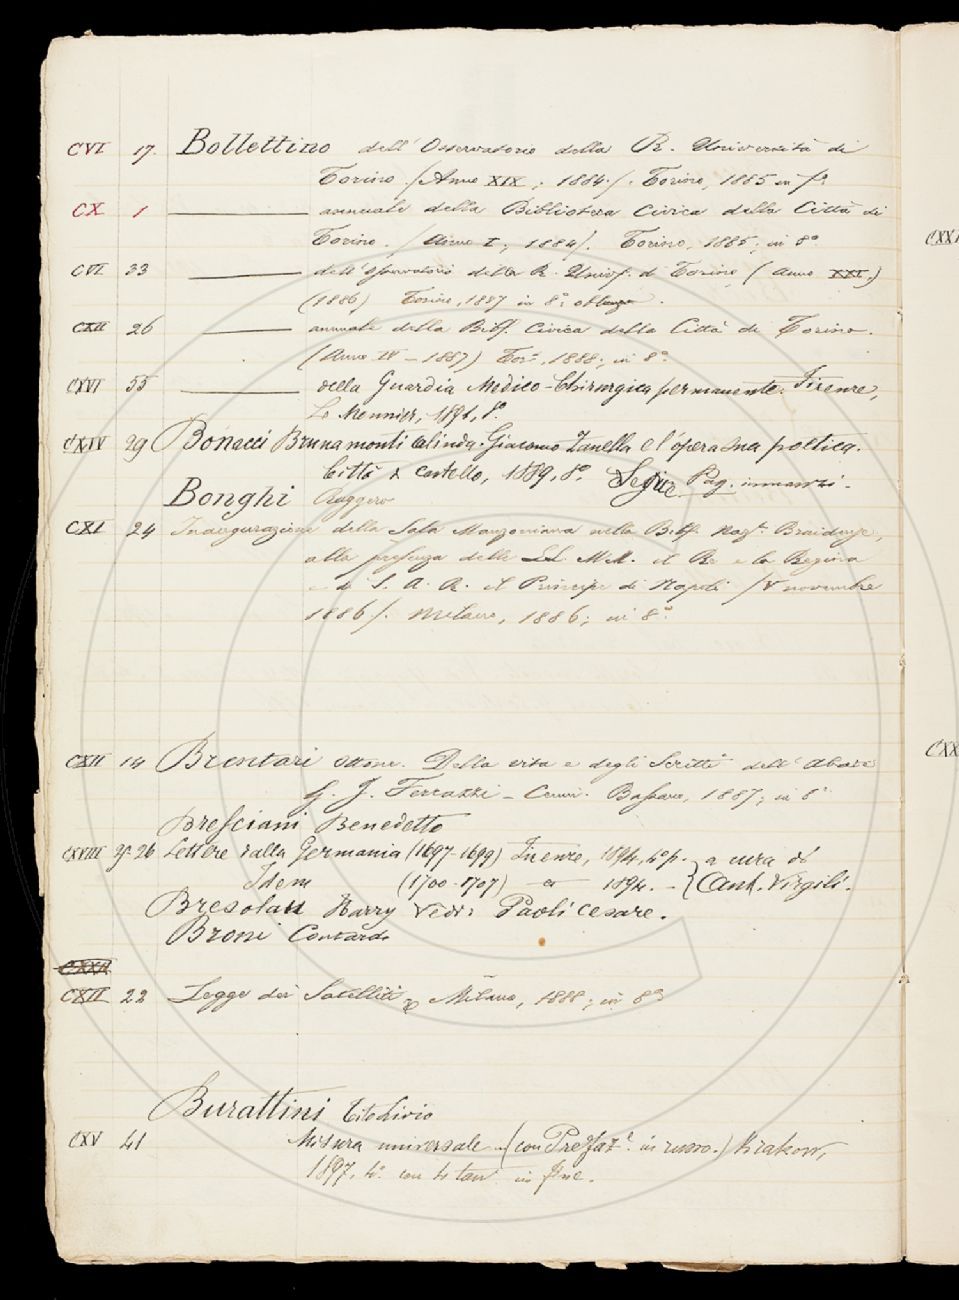 CVI 17. Bollettino dell'Osservatorio della R. Università di
Torino /Anno XIX; 1884/. Torino, 1885 in f.º
CX 1 ——— annuale della Biblioteca Civica della Città di
Torino. /Anno I; 1884/. Torino, 1885; in 8º
CXXI
CVI 33 ——— dell'Osservatorio della R. Univ. d Torino (Anno XXI)
(1886) Torino, 1887 in 8º oblungo.
CXII 26 ——— annuale della Bibl. Civica della Città di Torino.
(Anno IV – 1887) Torº, 1888; in 8º
CXVI 55 ——— della Guardia Medico-Chirurgica permanente. Firenze,
Le Monnier, 1891, 8º
CXIV 29 Bonacci Brunamonti Alinda. Giacomo Zanella e l'opera sua poetica.
Città d Castello, 1889, 8º. Segue Pag. innanzi.
Bonghi Ruggero
CXI 24 Inaugurazione della Sala Manzoniana nella Bibl. Nazˡ Braidense,
alla presenza delle LL. MM. il Re e la Regina
e di S. A. R. il Principe di Napoli /V novembre
1886/. Milano, 1886; in 8º
CXII 14 Brentari Ottone. Della vita e degli Scritti dell'Abate
G. J. Ferrazzi – Cenni. Bassano, 1887; in 8º
CXX
Bresciani Benedetto
CXVIII 25-26 Lettere dalla Germania (1697-1699) Firenze, 1894, 4º p. } a cura di
Idem (1700-1707) – 1894. – } Ant. Virgili.
Bresolau Harry Vedi: Paoli Cesare.
Broni Contardo
CXXII
CXII 22 Legge dei Satelliti Milano, 1888; in 8º
Burattini Tito Livio
CXV 41 Misura universale (con Prefazº in russo.) Krakow,
1897, 4º con 4 tav in fine.